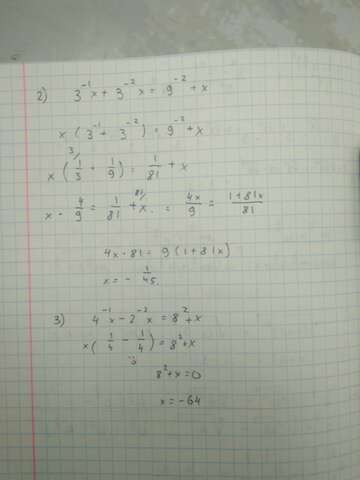 2) 3⁻¹x + 3⁻²x = 9⁻² + x
x (3⁻¹ + 3⁻²) = 9⁻² + x
x (³⁄ 1/3 + 1/9) = 1/81 + x
x · 4/9 = 1/81 + ⁸¹⁄ x. = 4x/9 = 1+81x/81
4x · 81 = 9 (1 + 81x)
x = - 1/45.
3) 4⁻¹x - 2⁻²x = 8² + x
x (1/4 - 1/4) = 8² + x
8² + x = 0
x = -64